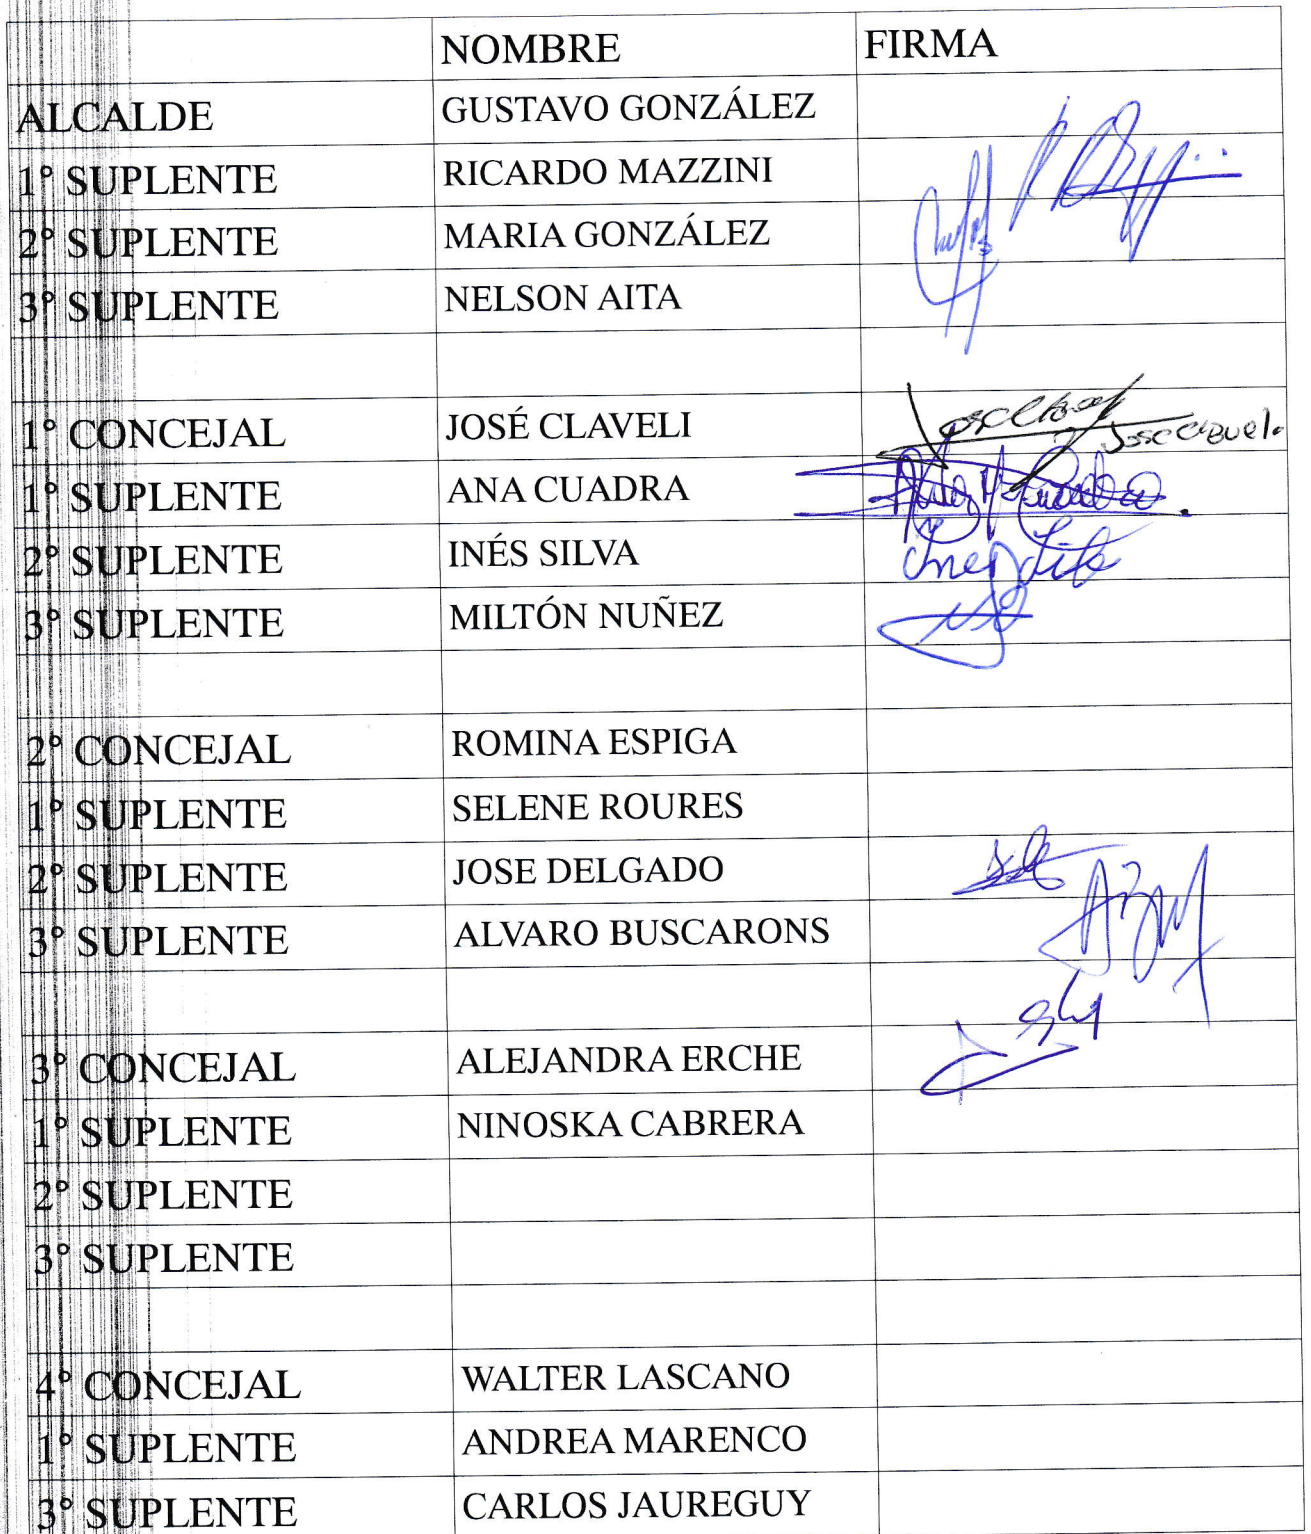 NOMBRE FIRMA
ALCALDE GUSTAVO GONZÁLEZ
1º SUPLENTE RICARDO MAZZINI
2º SUPLENTE MARIA GONZÁLEZ
3º SUPLENTE NELSON AITA
1º CONCEJAL JOSÉ CLAVELI
1º SUPLENTE ANA CUADRA
2º SUPLENTE INÉS SILVA
3º SUPLENTE MILTÓN NUÑEZ
2º CONCEJAL ROMINA ESPIGA
1º SUPLENTE SELENE ROURES
2º SUPLENTE JOSE DELGADO
3º SUPLENTE ALVARO BUSCARONS
3º CONCEJAL ALEJANDRA ERCHE
1º SUPLENTE NINOSKA CABRERA
2º SUPLENTE
3º SUPLENTE
4º CONCEJAL WALTER LASCANO
1º SUPLENTE ANDREA MARENCO
3º SUPLENTE CARLOS JAUREGUY